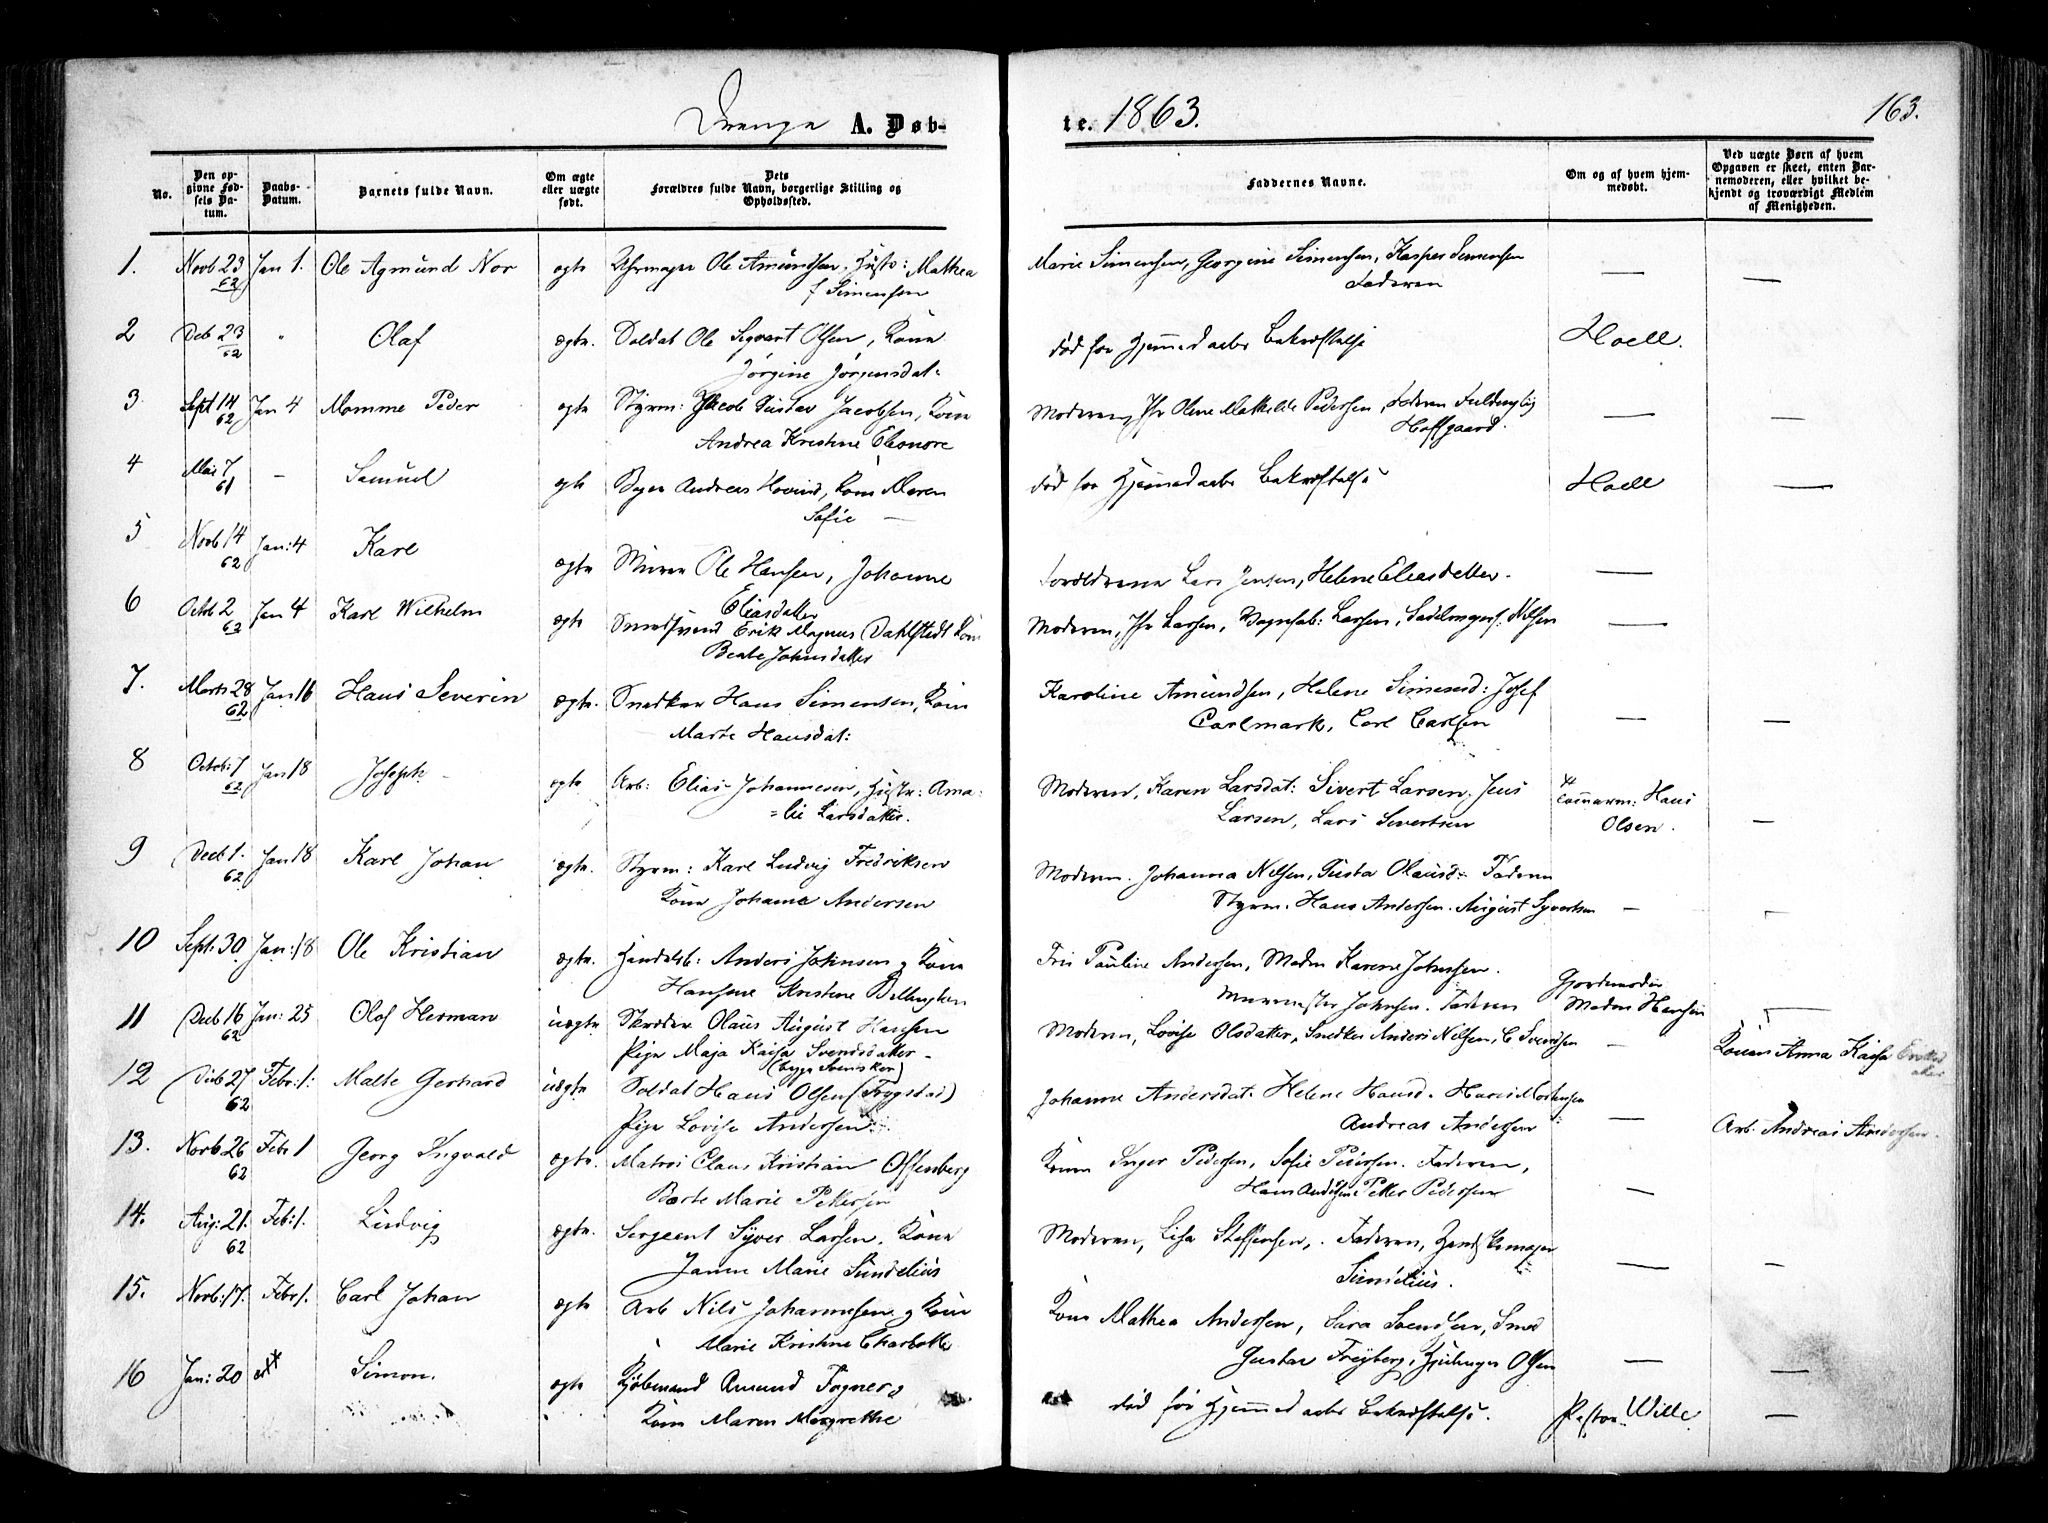 Drenge A. Døb-
te. 1863.
163.
No.
Den op-
givne Fød-
sels Da-
tum.
Daabs-
Datum.
Barnets fulde Navn.
Om ægte
eller uægte
født.
Dets
Forældres fulde Navn, borgerlige Stilling og
Opholdssted.
Faddernes Navne.
Om og af hvem hjem-
medøbt.
Ved uægte Børn af hvem
Opgaven er skeet, enten Bar-
nemoderen, eller hvilket be-
kjendt og troværdigt Medlem
af Menigheden.
1. Novb 23 Jan 1. Ole Agmund Nor ægte Uhrmager Ole Amundsen, Hustr: Mathea Marie Simensen, Georgine Simensen, Kasper Simensen —
62 Simensen Faderen —
2 Deb 23 " Olaf ægte. Soldat Ole Sigvart Olsen, Kone død før Hjemmedaabs Bekræftelse Hoell.
62 Jørgine Jørgensdat:
3 Sept 14 Jan 4 Momme Peder ægte Styrm: Jacob Gustav Jacobsen, Kone Moderen, Olene Mathilde Pedersen, Faderen —
62 Andrea Kristine Eleonore Hoffgaard.
4 Mai 7 - Samuel ægte Andreas Hovind, Kone Maren død før Hjemmedaabs Bekræftelse Hoell —
61 Sofie —
5 Novb 14 Jan: 4 Karl ægte Murer Ole Hansen, Johanne Forældrene Lars Jensen, Helene Eliasdatter. —
62 Eliasdatter
6 Octb 2 Jan 4 Karl Wilhelm ægte Smedsvend Erik Magnus Dahlstedt Kone Moderen, Larsen, Larsen, Nilsen —
62 Beate Johnsdatter
7. Marts 28 Jan 16 Hans Severin ægte. Snedker Hans Simensen, Kone Karoline Amundsen, Helene Simensd: Josef
62 Marte Hansdat: Carlmark, Carl Carlsen — —
8 Octob: 7 Jan 18 Joseph ægte Arb: Elias Johannesen, Hustr: Ama= Moderen, Karen Larsdat: Sivert Larsen, Jens Hans
62 =lie Larsdatter. Larsen, Lars Sivertsen Olsen. —
9 Decb 1. Jan 18 Karl Johan ægte. Styrm: Karl Ludvig Fredriksen Moderen. Johanna Nilsen, Gusta Olausd: Faderen
62 Kone Johanne Andersen Styrm. Hans Andersen. August Syvertsen —
10 Sept: 30 Jan: 18 Ole Kristian ægte. Handelsb: Anders Johnsen og Kone Pauline Andersen, Madm Karene Johnsen. Gjordemoder
Hansine Kristine Murmester Johnsen. Faderen Madm Hansen
11 Deb 16 Jan: 25 Olaf Herman uægte Skræder Olaus August Hansen Moderen, Lovise Olsdatter, Snedker Anders Nilsen, C Svendsen — Konen Anna Kaisa
62 Pige Maja Kaisa Svendsdatter
(begge Svensker)
12 Dcb 27 Febr: 1: Malte Gerhard uægte Soldat Hans Olsen (Trøgstad) Johanne Andersdat. Helene Hansd. Hans Mortensen
62 Pige Lovise Andersen Andreas Andersen — Arb. Andreas Andersen.
13. Novb 26 Feb 1 Georg Ingvald ægte. Matros Claus Kristian Offenberg Konen Inger Pedersen, Sofie Pedersen. Faderen,
62 Berte Marie Pettersen Hans Andersen Petter Pedersen —
14. Aug: 21. Feb: 1. Ludvig ægte. Sergeant Syver Larsen. Kone Moderen, Lisa Steffensen, Faderen, Handskemager
62 Janne Marie Sundelius Sundelius. — —
15. Novb: 17. Febr 1. Carl Johan ægte Arb Nils Johannesen og Kone Kone Mathea Andersen, Sara Svendsen, Smed
Marie Kristine Charlotte Gustav Freyberg, Olsen — —
16 Jan: 20 Simon. ægte Kjøbmand Amund Fogner og død før Hjemmedaabs Bekræftelse. Pastor Wille —
Kone Maren Margrethe